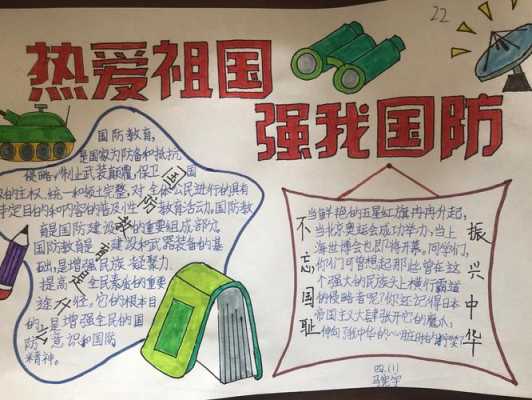 22
热爱祖国
强我国防
国防教育，
是国家为防备和抵抗
侵略，制止武装颠覆，保卫国
的主权、统一和领土完整，对全体公民进行的具有
特定目的和内容的普及性教育活动。国防教
育是国防建设的重要组成部分，
国防教育是建设和武器装备的基
础，是增强民族凝聚力、
提高全民素养的重要
途径。它的根本目
的是增强全民的国
防意识和国防
精神。
国防教育
不忘国耻
当鲜艳的五星红旗冉冉升起，
当北京奥运会成功举办，当上
海世博会也即将开幕，同学们，
你们可曾想起那些曾在这
个强大的民族头上横行霸道
的侵略者呢？你还记得日本
帝国主义大肆张开它的魔爪，
伸向张中华的心脏时的
振兴中华
四.(1)